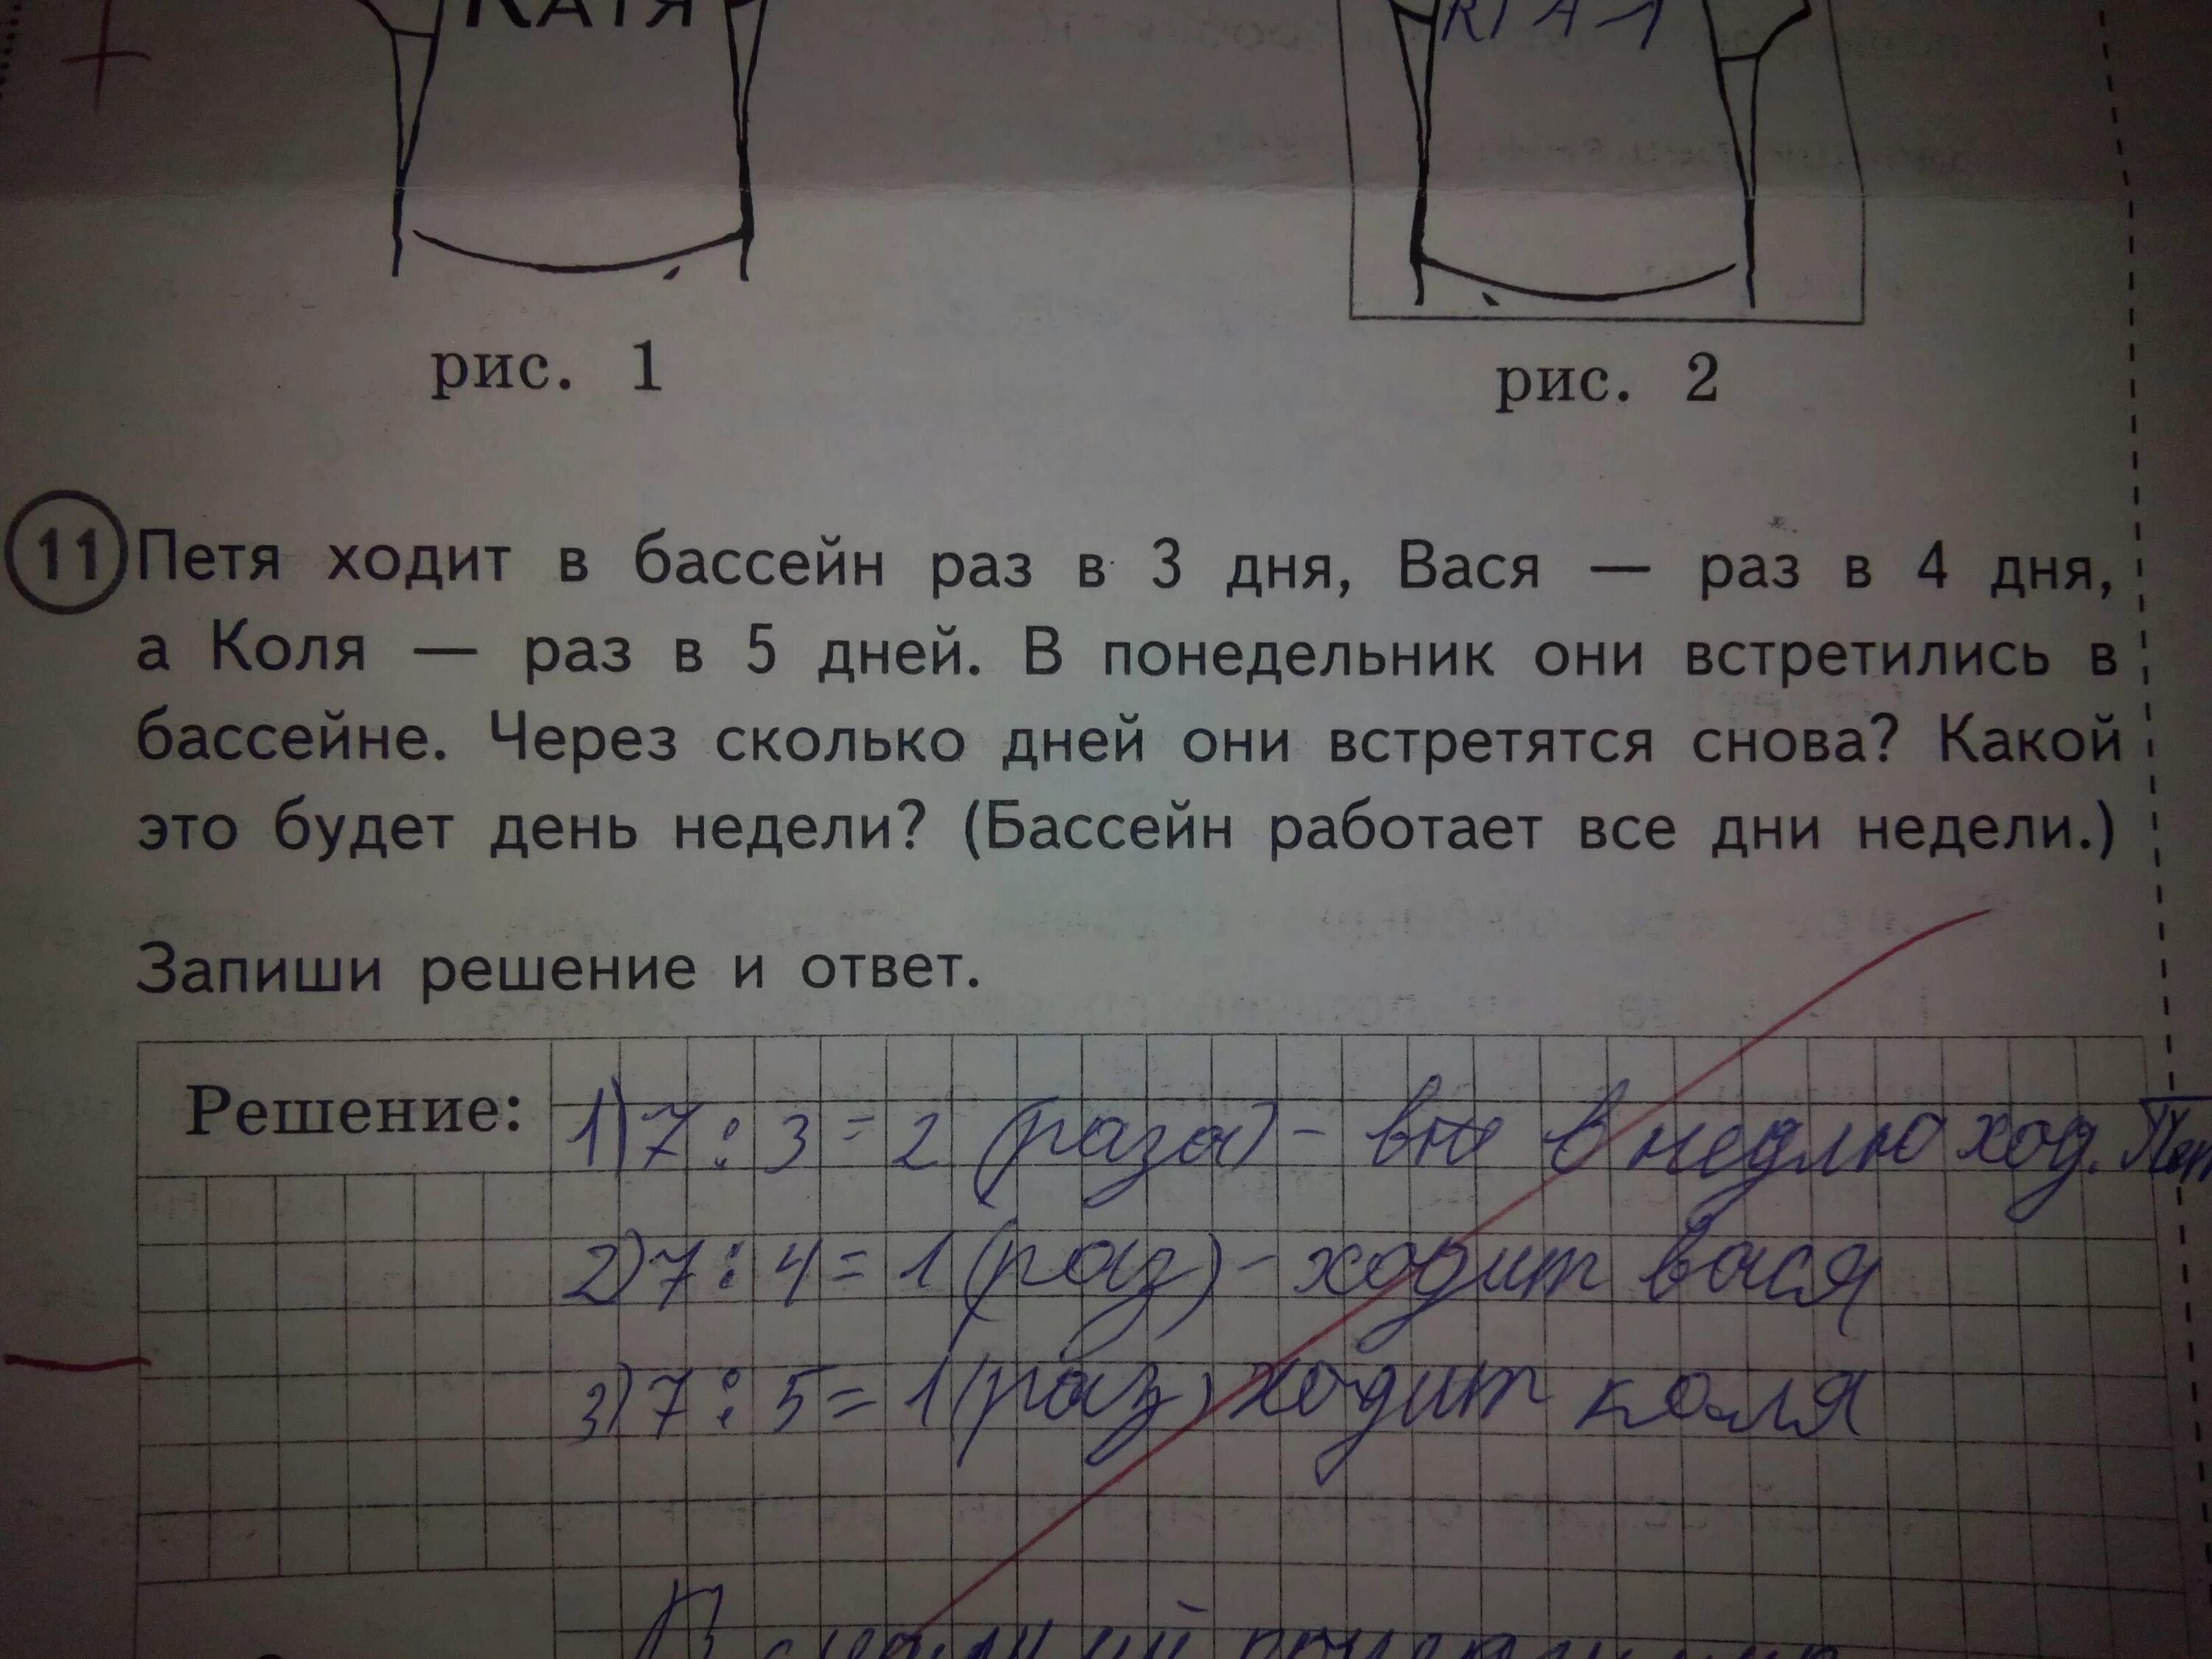 КАТЯ
рис. 1
рис. 2
11 Петя ходит в бассейн раз в 3 дня, Вася — раз в 4 дня,
а Коля — раз в 5 дней. В понедельник они встретились в
бассейне. Через сколько дней они встретятся снова? Какой
это будет день недели? (Бассейн работает все дни недели.)
Запиши решение и ответ.
Решение: 1) 7 : 3 = 2 (раза) - в неделю ход.
2) 7 : 4 = 1 (раз) - ходит вася
3) 7 : 5 = 1 (раз) ходит коля